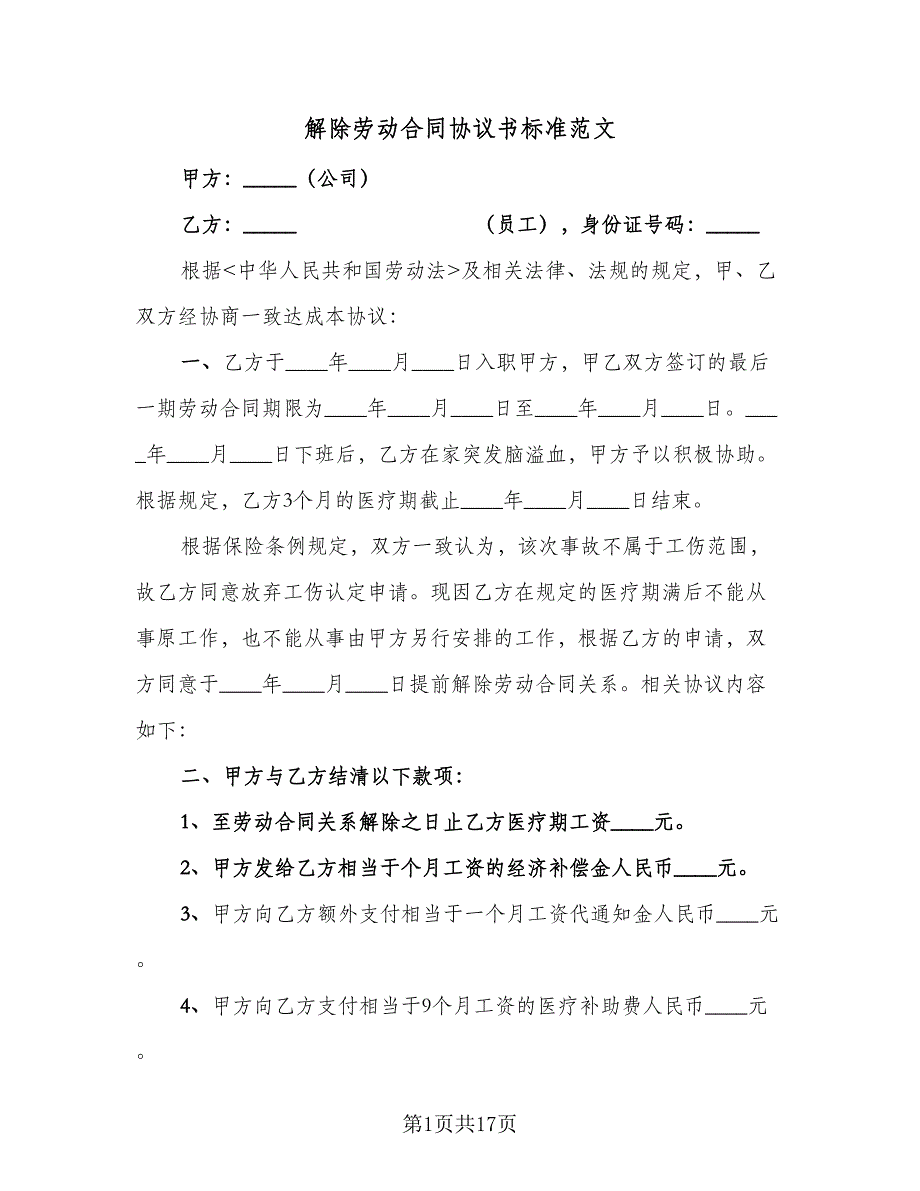 解除劳动合同协议书标准范文
甲方：_____（公司）
乙方：_____ （员工），身份证号码：_____
根据<中华人民共和国劳动法>及相关法律、法规的规定，甲、乙
双方经协商一致达成本协议：
一、乙方于____年____月____日入职甲方，甲乙双方签订的最后
一期劳动合同期限为____年____月____日至____年____月____日。___
_年____月____日下班后，乙方在家突发脑溢血，甲方予以积极协助。
根据规定，乙方3个月的医疗期截止____年____月____日结束。
根据保险条例规定，双方一致认为，该次事故不属于工伤范围，
故乙方同意放弃工伤认定申请。现因乙方在规定的医疗期满后不能从
事原工作，也不能从事由甲方另行安排的工作，根据乙方的申请，双
方同意于____年____月____日提前解除劳动合同关系。相关协议内容
如下：
二、甲方与乙方结清以下款项：
1、至劳动合同关系解除之日止乙方医疗期工资____元。
2、甲方发给乙方相当于个月工资的经济补偿金人民币____元。
3、甲方向乙方额外支付相当于一个月工资代通知金人民币____元
。
4、甲方向乙方支付相当于9个月工资的医疗补助费人民币____元
。
第1页共17页